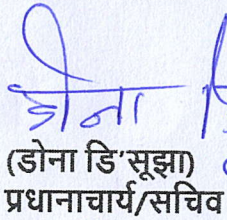 डोना डि
(डोना डि'सूझा)
प्रधानाचार्य/सचिव